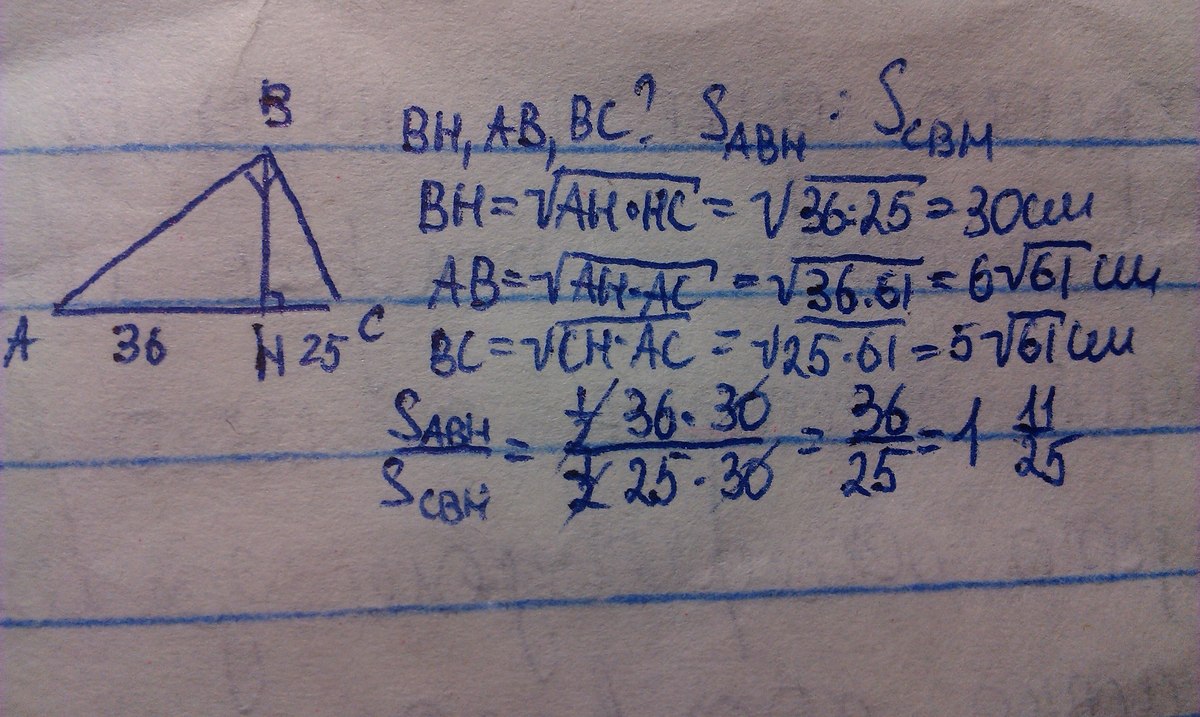 B
A 36 H 25 C
BH, AB, BC? S_ABH : S_CBH
BH = √AH·HC = √36·25 = 30см
AB = √AH·AC = √36·61 = 6√61 см
BC = √CH·AC = √25·61 = 5√61 см
S_ABH / S_CBH = (1/2 36·30) / (1/2 25·30) = 36/25 = 1 11/25